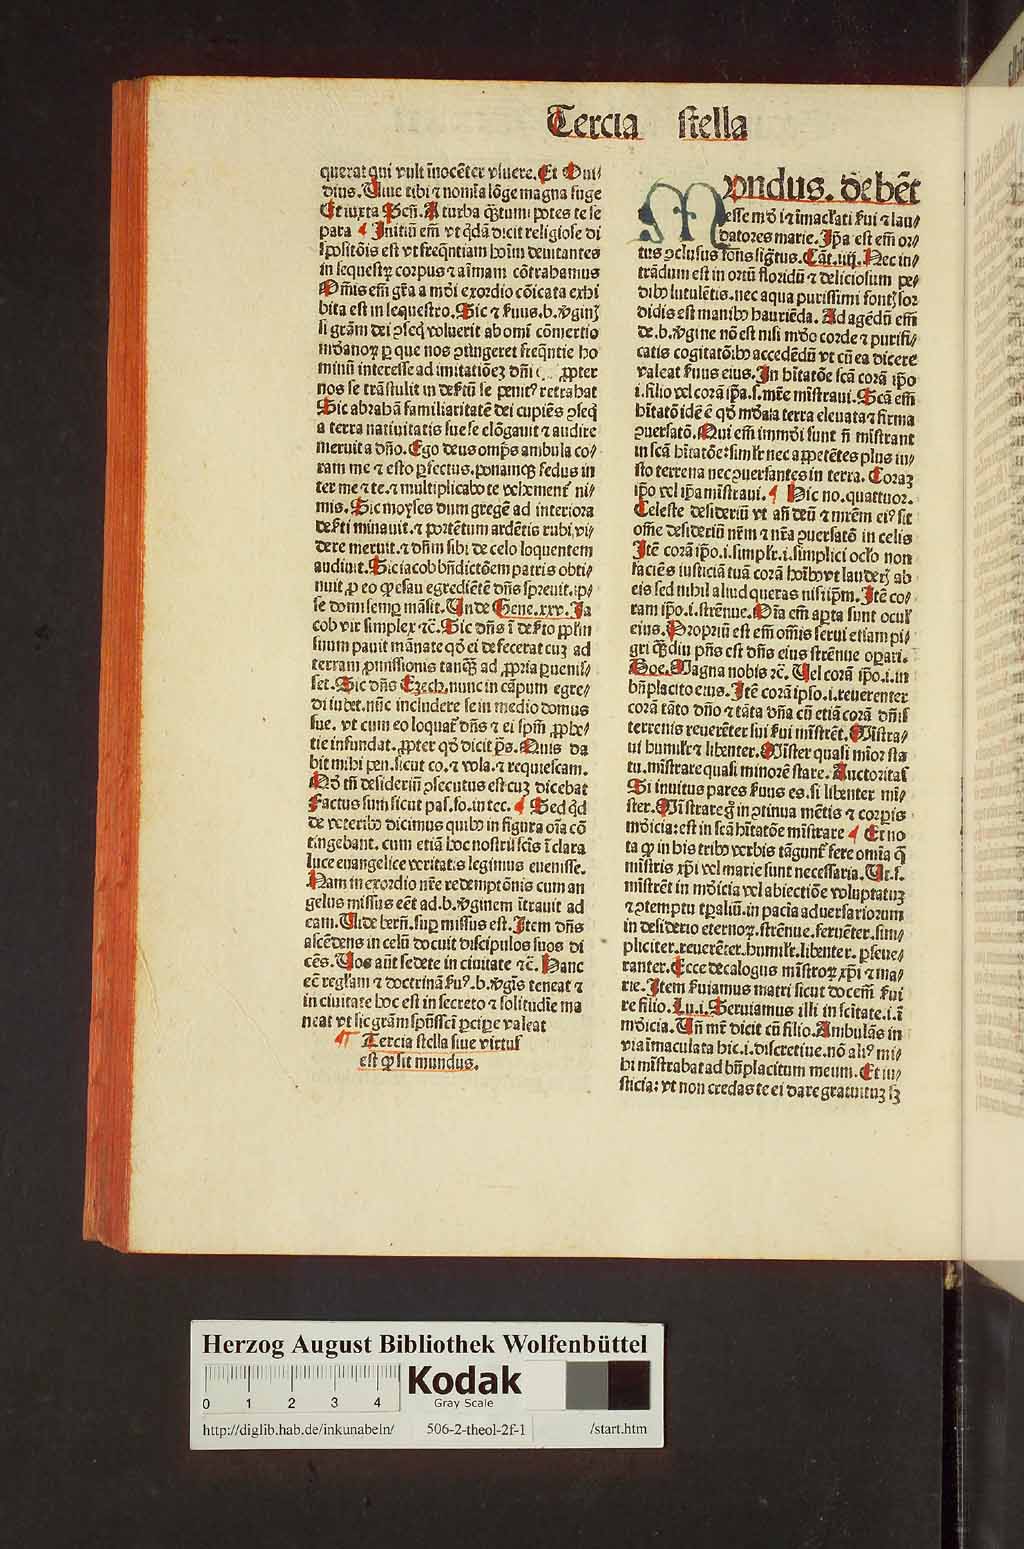 Tercia stella
querat qui vult īnocēter viuere. Et Oui/
dius. Uiue tibi ⁊ nomīa lōge magna fuge
Et iuxta Seń. A turba q̄ꝫtum potes te se
para Initiū em̄ vt q̇dā dicit religiose di
sꝑositōis est vt freq̄ntiam hoīm deuitantes
in sequestꝝ corpus ⁊ aīmam cōtrahamus
Om̄is em̄ gr̄a a mōi exordio cōicata exhi
bita est in sequestro. Sic ⁊ ẜuus .b. v̄ginꝭ
si gram̄ dei ꝯseq̇ voluerit ab omī cōmertio
mōanoꝝ ꝑ que nos ꝯiūngeret freq̄ntie ho
minū interesse ad imitatiōeꝫ dn̄i ꝓpter
nos se trāstulit in deẜtū se penitꝰ retrahat
Sic abrahā familiaritatē dei cupiēs ꝯseq̇
a terra natiuitatis sue se elōgauit ⁊ audire
meruit a dn̄o. Ego deus omp̄s ambula co/
ram me ⁊ esto ꝑfectus. ponamqꝫ fedus in
ter me ⁊ te. ⁊ multiplicabo te vehemenť ni/
mis. Sic moyses dum gregē ad interiora
deẜti minauit. ⁊ portētum ardētis rubi vi/
dere meruit. ⁊ dn̄m sibi de celo loquentem
audiuit. Sic iacob bn̄dictōem patris obti/
nuit ꝓ eo ꝙ esau egrediētē dn̄s spreuit. ip/
se domi semꝑ māsit. Unde Gene. xxv. Ia
cob vir simplex ⁊c̄. Sic dn̄s ī deẜto ppl̄m
suum pauit mānate qō ei defecerat cuꝫ ad
terram ꝓmissionis tanqꝫ ad ꝓpria ꝑuenis/
set. Sic dn̄s Ezech. nunc in cāpum egre/
di iubet. nūc includere se in medio domus
sue. vt cum eo loquať dn̄s ⁊ ei spm̄ ꝓphe/
tie infundat. ꝓpter qō dicit ps̄. Quis da
bit mihi pen. sicut co. ⁊ vola. ⁊ requiescam.
Qō tn̄ desideriū ꝯsecutus est cuꝫ dicebat
Factus sum sicut pas. so. in tec. Sed qd̄
de veteribꝰ dicimus quibꝰ in figura oīa cō
tingebant. cum etiā hoc nostrū sc̄is ī clara
luce euangelice veritatis legimus euenisse.
Nam in exordio nr̄e redemptōnis cum an
gelus missus eēt ad .b. v̄ginem ītrauit ad
eam. Uide bern̄. suꝑ missus est. Item dn̄s
ascēdens in celū docuit discipulos suos di
cēs. Uos aūt sedete in ciuitate ⁊c̄. Hanc
eē regl̄am ⁊ doctrinā ẜuꝰ .b. v̄gīs teneat ⁊
in ciuitate hoc est in secreto ⁊ solitudīe ma
neat vt sic gram̄ spūssc̄i ꝑciꝑe valeat
Tercia stella siue virtus
est ꝙ sit mundus.
Mondus. debēt
esse mōi ⁊ īmacl̄ati ẜui ⁊ lau/
datores marie. Ip̄a est em̄ or/
tus ꝯclusus fons sig̃tus. Cāt. iiij. Nec in/
trādum est in ortū floridū ⁊ deliciosum pe/
dibꝰ lutulētis. nec aqua purissimi fontꝭ sor
didis est manibꝰ hauriēda. Ad agēdū em̄
de .b. v̄gine nō est nisi mōo corde ⁊ purifi/
catis cogitatōibꝰ accedēdū vt cū ea dicere
valeat ẜuus eius. In hītatōe scā corā ip̄o
.i. filio vel corā ip̄a .s. mr̄e mīstraui. Scā em̄
hītatō idē ē qō mōaīa terra eleuata ⁊ firma
ꝯuersatō. Qui em̄ immōi sunt n̄ mīstrant
in scā hītatōe: simlr̄ nec appetētes plus iu/
sto terrena nec ꝯuersantes in terra. Coraꝫ
ip̄o vel ip̄a mīstraui. Hic no. quattuor.
Celeste desideriū vt añ deū ⁊ mr̄em eiꝰ sit
om̄e desideriū nr̄m ⁊ nr̄a ꝯuersatō in celis
Itē corā ip̄o .i. simplr̄ .i. simplici oclo non
faciēs iusticiā tuā corā hoībꝰ vt lauderꝭ ab
eis sed nihil aliud queras nisi ip̄m. Itē co/
ram ip̄o .i. strēnue. Oīa em̄ aꝑta sunt oculꝭ
eius. Propriū est em̄ om̄is serui etiam pi/
gri qꝫdiu pn̄s est dn̄s eius strēnue oꝑari.
Boe. Magna nobis ⁊c̄. Vel corā ip̄o .i. in
bn̄placito eius. Itē corā ipso .i. reuerenter
corā tāto dn̄o ⁊ tāta dn̄a cū etiā corā dn̄is
terrenis reuerēter sui ẜui mīstrēt. Mīstra/
ui humilr̄ ⁊ libenter. Mīster quasi mīor sta
tu. mīstrare quasi minorē stare. Auctoritas
Si inuitus pares ẜuus es. si libenter mī/
ster. Mīstrare g̊ in ꝯtinua mētis ⁊ corꝑis
mōicia: est in scā hītatōe mīstrare Et no
ta ꝙ in his tribꝰ verbis tāgunť fere omīa q̄
mīstris xp̄i vel marie sunt necessaria. Ut .s.
mīstrēt in mōicia vel abiectiōe voluptatuꝫ
⁊ ꝯtemptu tꝑaliū. in pacīa aduersariorum
in desiderio eternoꝝ. strēnue. feruēter. sim/
pliciter. reuerēter. humilr̄. libenter. ꝑseue/
ranter. Ecce decalogus mīstroꝝ xp̄i ⁊ ma/
rie. Item ẜuiamus matri sicut docem̄ ẜui
re filio. Lu. i. Seruiamus illi in scītate .i. ī
mōicia. Un̄ mr̄ dicit cū filio. Ambulās in
via īmaculata hic .i. discretiue. nō aliꝰ mi/
hi mīstrabat ad bn̄placitum meum. Et iu/
sticia: vt non credas te ei dare gratuituꝫ sꝫ
Herzog August Bibliothek Wolfenbüttel
0 1 2 3 4
Kodak
Gray Scale
http://diglib.hab.de/inkunabeln/ 506-2-theol-2f-1 /start.htm